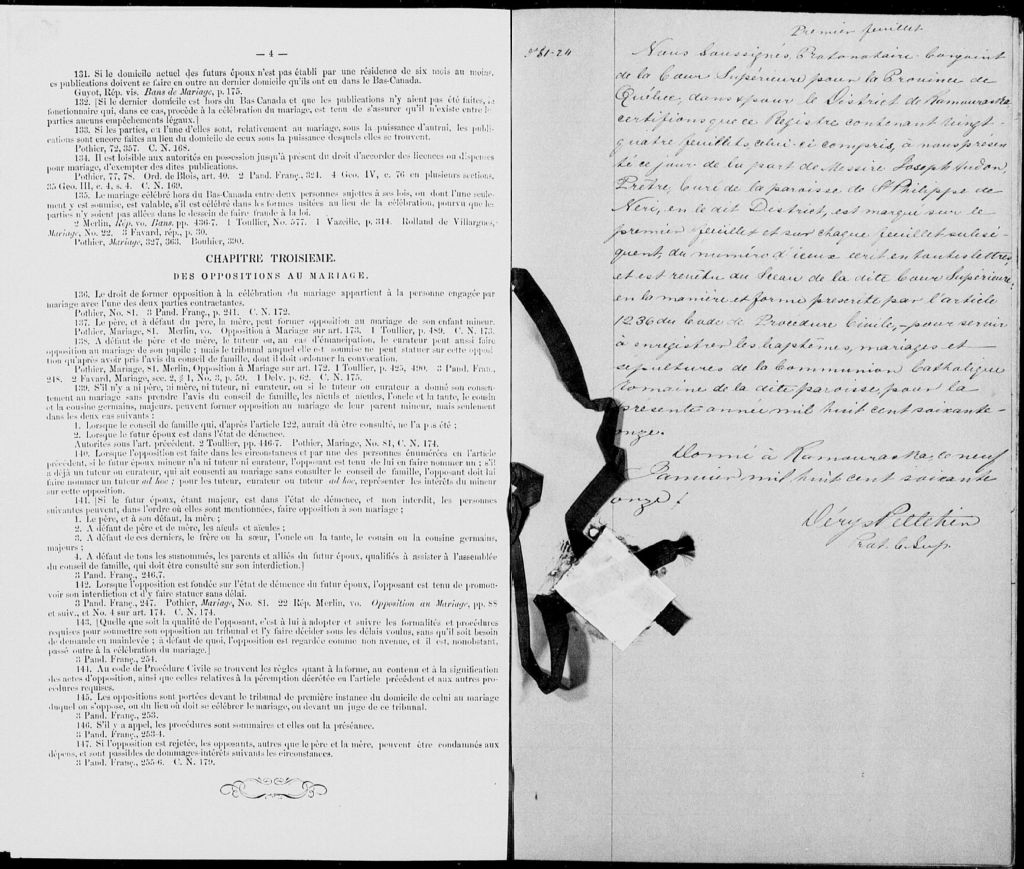 — 4 —
131. Si le domicile actuel des futurs époux n'est pas établi par une résidence de six mois au moins,
es publications doivent se faire en outre au dernier domicile qu'ils ont eu dans le Bas-Canada.
Guyot, Rép. vis. Bans de Mariage, p. 175.
132. [Si le dernier domicile est hors du Bas Canada et que les publications n'y aient pas été faites,
fonctionnaire qui, dans ce cas, procède à la célébration du mariage, est tenu de s'assurer qu'il n'existe entre le
parties aucuns empêchements légaux.]
133. Si les parties, ou l'une d'elles sont, relativement au mariage, sous la puissance d'autrui, les publi-
cations sont encore faites au lieu du domicile de ceux sous la puissance desquels elles se trouvent.
Pothier, 72, 357. C. N. 168.
134. Il est loisible aux autorités en possession jusqu'à présent du droit d'accorder des licences ou dispenses
pour mariage, d'exempter des dites publications.
Pothier, 77, 78. Ord. de Blois, art. 40. 2 Pand. Franç., 324. 4 Geo. IV, c. 76 en plusieurs sections.
35 Geo. III, c. 4, s. 4. C. N. 169.
135. Le mariage célébré hors du Bas-Canada entre deux personnes sujettes à ses lois, ou dont l'une seule-
ment y est soumise, est valable, s'il est célébré dans les formes usitées au lieu de la célébration, pourvu que les
parties n'y soient pas allées dans le dessein de faire fraude à la loi.
2 Merlin, Rép. vo. Bans, pp. 436-7. 1 Toullier, No. 577. 1 Vazeille, p. 314. Rolland de Villargues,
Mariage, No. 22. 3 Favard, rép., p. 30.
Pothier, Mariage, 327, 363. Bouhier, 390.
CHAPITRE TROISIEME.
DES OPPOSITIONS AU MARIAGE.
136. Le droit de former opposition à la célébration du mariage appartient à la personne engagée par
mariage avec l'une des deux parties contractantes.
Pothier, No. 81. 3 Pand. Franç., p. 241. C. N. 172.
137. Le père, et à défaut du père, la mère, peut former opposition au mariage de son enfant mineur.
Pothier, Mariage, 81. Merlin, vo. Opposition à Mariage sur art. 173. 1 Toullier, p. 489. C. N. 173.
138. A défaut de père et de mère, le tuteur ou, au cas d'émancipation, le curateur peut aussi faire
opposition au mariage de son pupille ; mais le tribunal auquel elle est soumise ne peut statuer sur cette oppo-
tion qu'après avoir pris l'avis du conseil de famille, dont il doit ordonner la convocation.
Pothier, Mariage, 81. Merlin, Opposition à Mariage sur art. 172. 1 Toullier, p. 425, 490. 3 Pand. Fran.,
248. 2 Favard, Mariage, sec. 2, § 1, No. 3, p. 59. 1 Delv. p. 62. C. N. 175.
139. S'il n'y a ni père, ni mère, ni tuteur, ni curateur, ou si le tuteur ou curateur a donné son consen-
tement au mariage sans prendre l'avis du conseil de famille, les aïeuls et aïeules, l'oncle et la tante, le cousin
et la cousine germains, majeurs, peuvent former opposition au mariage de leur parent mineur, mais seulement
dans les deux cas suivants :
1. Lorsque le conseil de famille qui, d'après l'article 122, aurait dû être consulté, ne l'a pas été ;
2. Lorsque le futur époux est dans l'état de démence.
Autorités sous l'art. précédent. 2 Toullier, pp. 446-7. Pothier, Mariage, No. 81, C. N. 174.
140. Lorsque l'opposition est faite dans les circonstances et par une des personnes énumérées en l'article
précédent, si le futur époux mineur n'a ni tuteur ni curateur, l'opposant est tenu de lui en faire nommer un ; s'il
a déjà un tuteur ou curateur, qui ait consenti au mariage sans consulter le conseil de famille, l'opposant doit lui
faire nommer un tuteur ad hoc ; pour les tuteur, curateur ou tuteur ad hoc, représenter les intérêts du mineur
sur cette opposition.
141. [Si le futur époux, étant majeur, est dans l'état de démence, et non interdit, les personnes
suivantes peuvent, dans l'ordre où elles sont mentionnées, faire opposition à son mariage ;
1. Le père, et à son défaut, la mère ;
2. A défaut de père et de mère, les aïeuls et aïeules ;
3. A défaut de ces derniers, le frère ou la sœur, l'oncle ou la tante, le cousin ou la cousine germains,
majeurs ;
4. A défaut de tous les susnommés, les parents et alliés du futur époux, qualifiés à assister à l'assemblée
du conseil de famille, qui doit être consulté sur son interdiction.]
3 Pand. Franç., 246,7.
142. Lorsque l'opposition est fondée sur l'état de démence du futur époux, l'opposant est tenu de promou-
voir son interdiction et d'y faire statuer sans délai.
3 Pand. Franç., 247. Pothier, Mariage, No. 81. 22 Rép. Merlin, vo. Opposition au Mariage, pp. 88
et suiv., et No. 4 sur art. 174. C. N. 174.
143. [Quelle que soit la qualité de l'opposant, c'est à lui à adopter et suivre les formalités et procédures
requises pour soumettre son opposition au tribunal et l'y faire décider sous les délais voulus, sans qu'il soit besoin
de demande en mainlevée ; à défaut de quoi, l'opposition est regardée comme non avenue, et il est, nonobstant,
passé outre à la célébration du mariage.]
3 Pand. Franç., 254.
144. Au code de Procédure Civile se trouvent les règles quant à la forme, au contenu et à la signification
des actes d'opposition, ainsi que celles relatives à la péremption décrétée en l'article précédent et aux autres pro-
cédures requises.
145. Les oppositions sont portées devant le tribunal de première instance du domicile de celui au mariage
duquel on s'oppose, ou du lieu où doit se célébrer le mariage, ou devant un juge de ce tribunal.
3 Pand. Franç., 253.
146. S'il y a appel, les procédures sont sommaires et elles ont la préséance.
3 Pand. Franç., 253-4.
147. Si l'opposition est rejetée, les opposants, autres que le père et la mère, peuvent être condamnés aux
dépens, et sont passibles de dommages-intérêts suivants les circonstances.
3 Pand. Franç., 255-6. C. N. 179.
Premier feuillet
51-24
Nous Soussignés, Protonotaire Conjoint
de la Cour Supérieure pour la Province de
Québec, dans & pour le District de Kamouraska
certifions que ce Régistre contenant vingt-
quatre feuillets, celui-ci compris, à nous présen
té ce jour de la part de Messire Joseph Audon,
Prêtre, Curé de la paroisse de St Philippe de
Neri, en le dit District, est marqué sur le
premier feuillet et sur chaque feuillet subsé-
quent, du numéro d'iceux écrit en toutes lettres,
et est revêtu du Sceau de la dite Cour Supérieure,
en la manière et forme prescrite par l'article
1236 du Code de Procédure Civile, – pour servir
à enregistrer les baptêmes, mariages et
sépultures de la Communion Catholique
Romaine de la dite paroisse, pour la
présente année mil huit cent soixante-
onze.
Donné à Kamouraska, ce neuf
Janvier mil huit cent soixante
onze /
Déry & Pelletier
Prot. C. Sup.